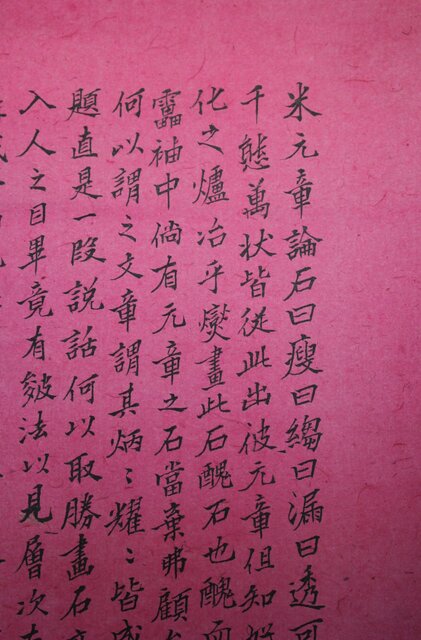 米元章論石曰瘦曰縐曰漏曰透可
千態萬状皆從此出彼元章但知
化之爐冶乎燮畫此石醜石也醜而
靁袖中倘有元章之石當棄弗顧
何以謂之文章謂其炳〻耀〻皆成
題直是一段説話何以取勝畫石亦
入人之目畢竟有皴法以見層次